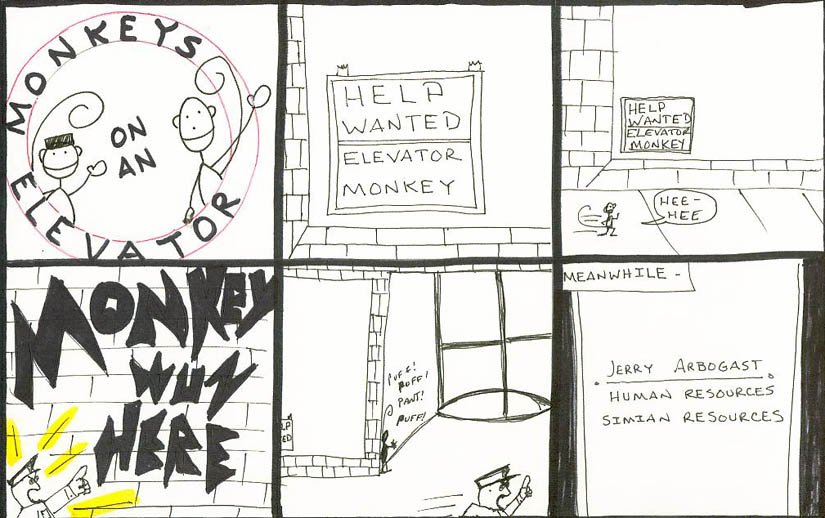 MONKEYS
ON
AN
ELEVATOR
HELP
WANTED
ELEVATOR
MONKEY
HELP
WANTED
ELEVATOR
MONKEY
HEE-
HEE
MONKEY
WUZ
HERE
LP
ED
PUFF!
PUFF!
PANT!
PUFF!
MEANWHILE -
JERRY ARBOGAST
HUMAN RESOURCES
SIMIAN RESOURCES